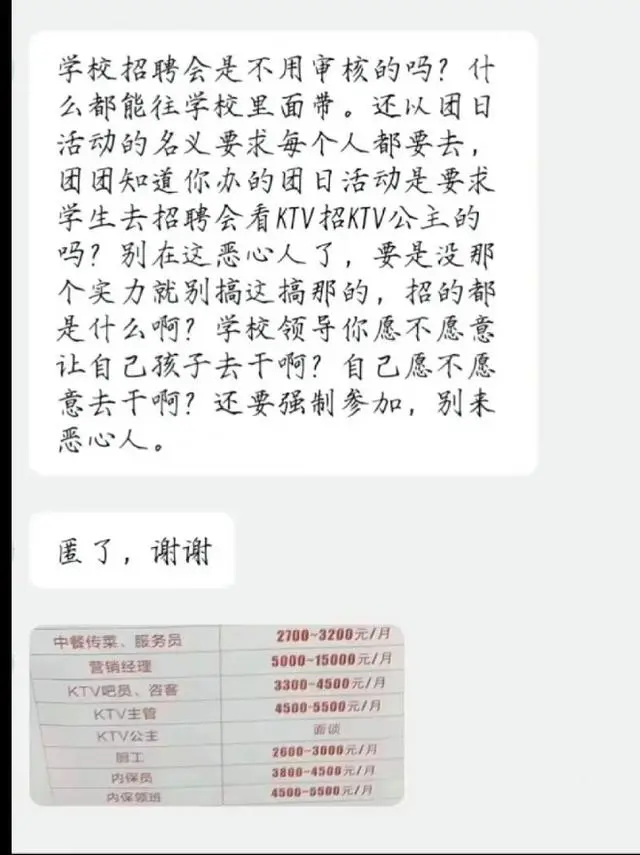 学校招聘会是不用审核的吗？什
么都能往学校里面带。还以团日
活动的名义要求每个人都要去，
团团知道你办的团日活动是要求
学生去招聘会看KTV招KTV公主的
吗？别在这恶心人了，要是没那
个实力就别搞这搞那的，招的都
是什么啊？学校领导你愿不愿意
让自己孩子去干啊？自己愿不愿
意去干啊？还要强制参加，别来
恶心人。
匿了，谢谢
中餐传菜、服务员 2700~3200元/月
营销经理 5000~15000元/月
KTV吧员、咨客 3300~4500元/月
KTV主管 4500~5500元/月
KTV公主 面谈
厨工 2600~3000元/月
内保员 3800~4500元/月
内保领班 4500~5500元/月